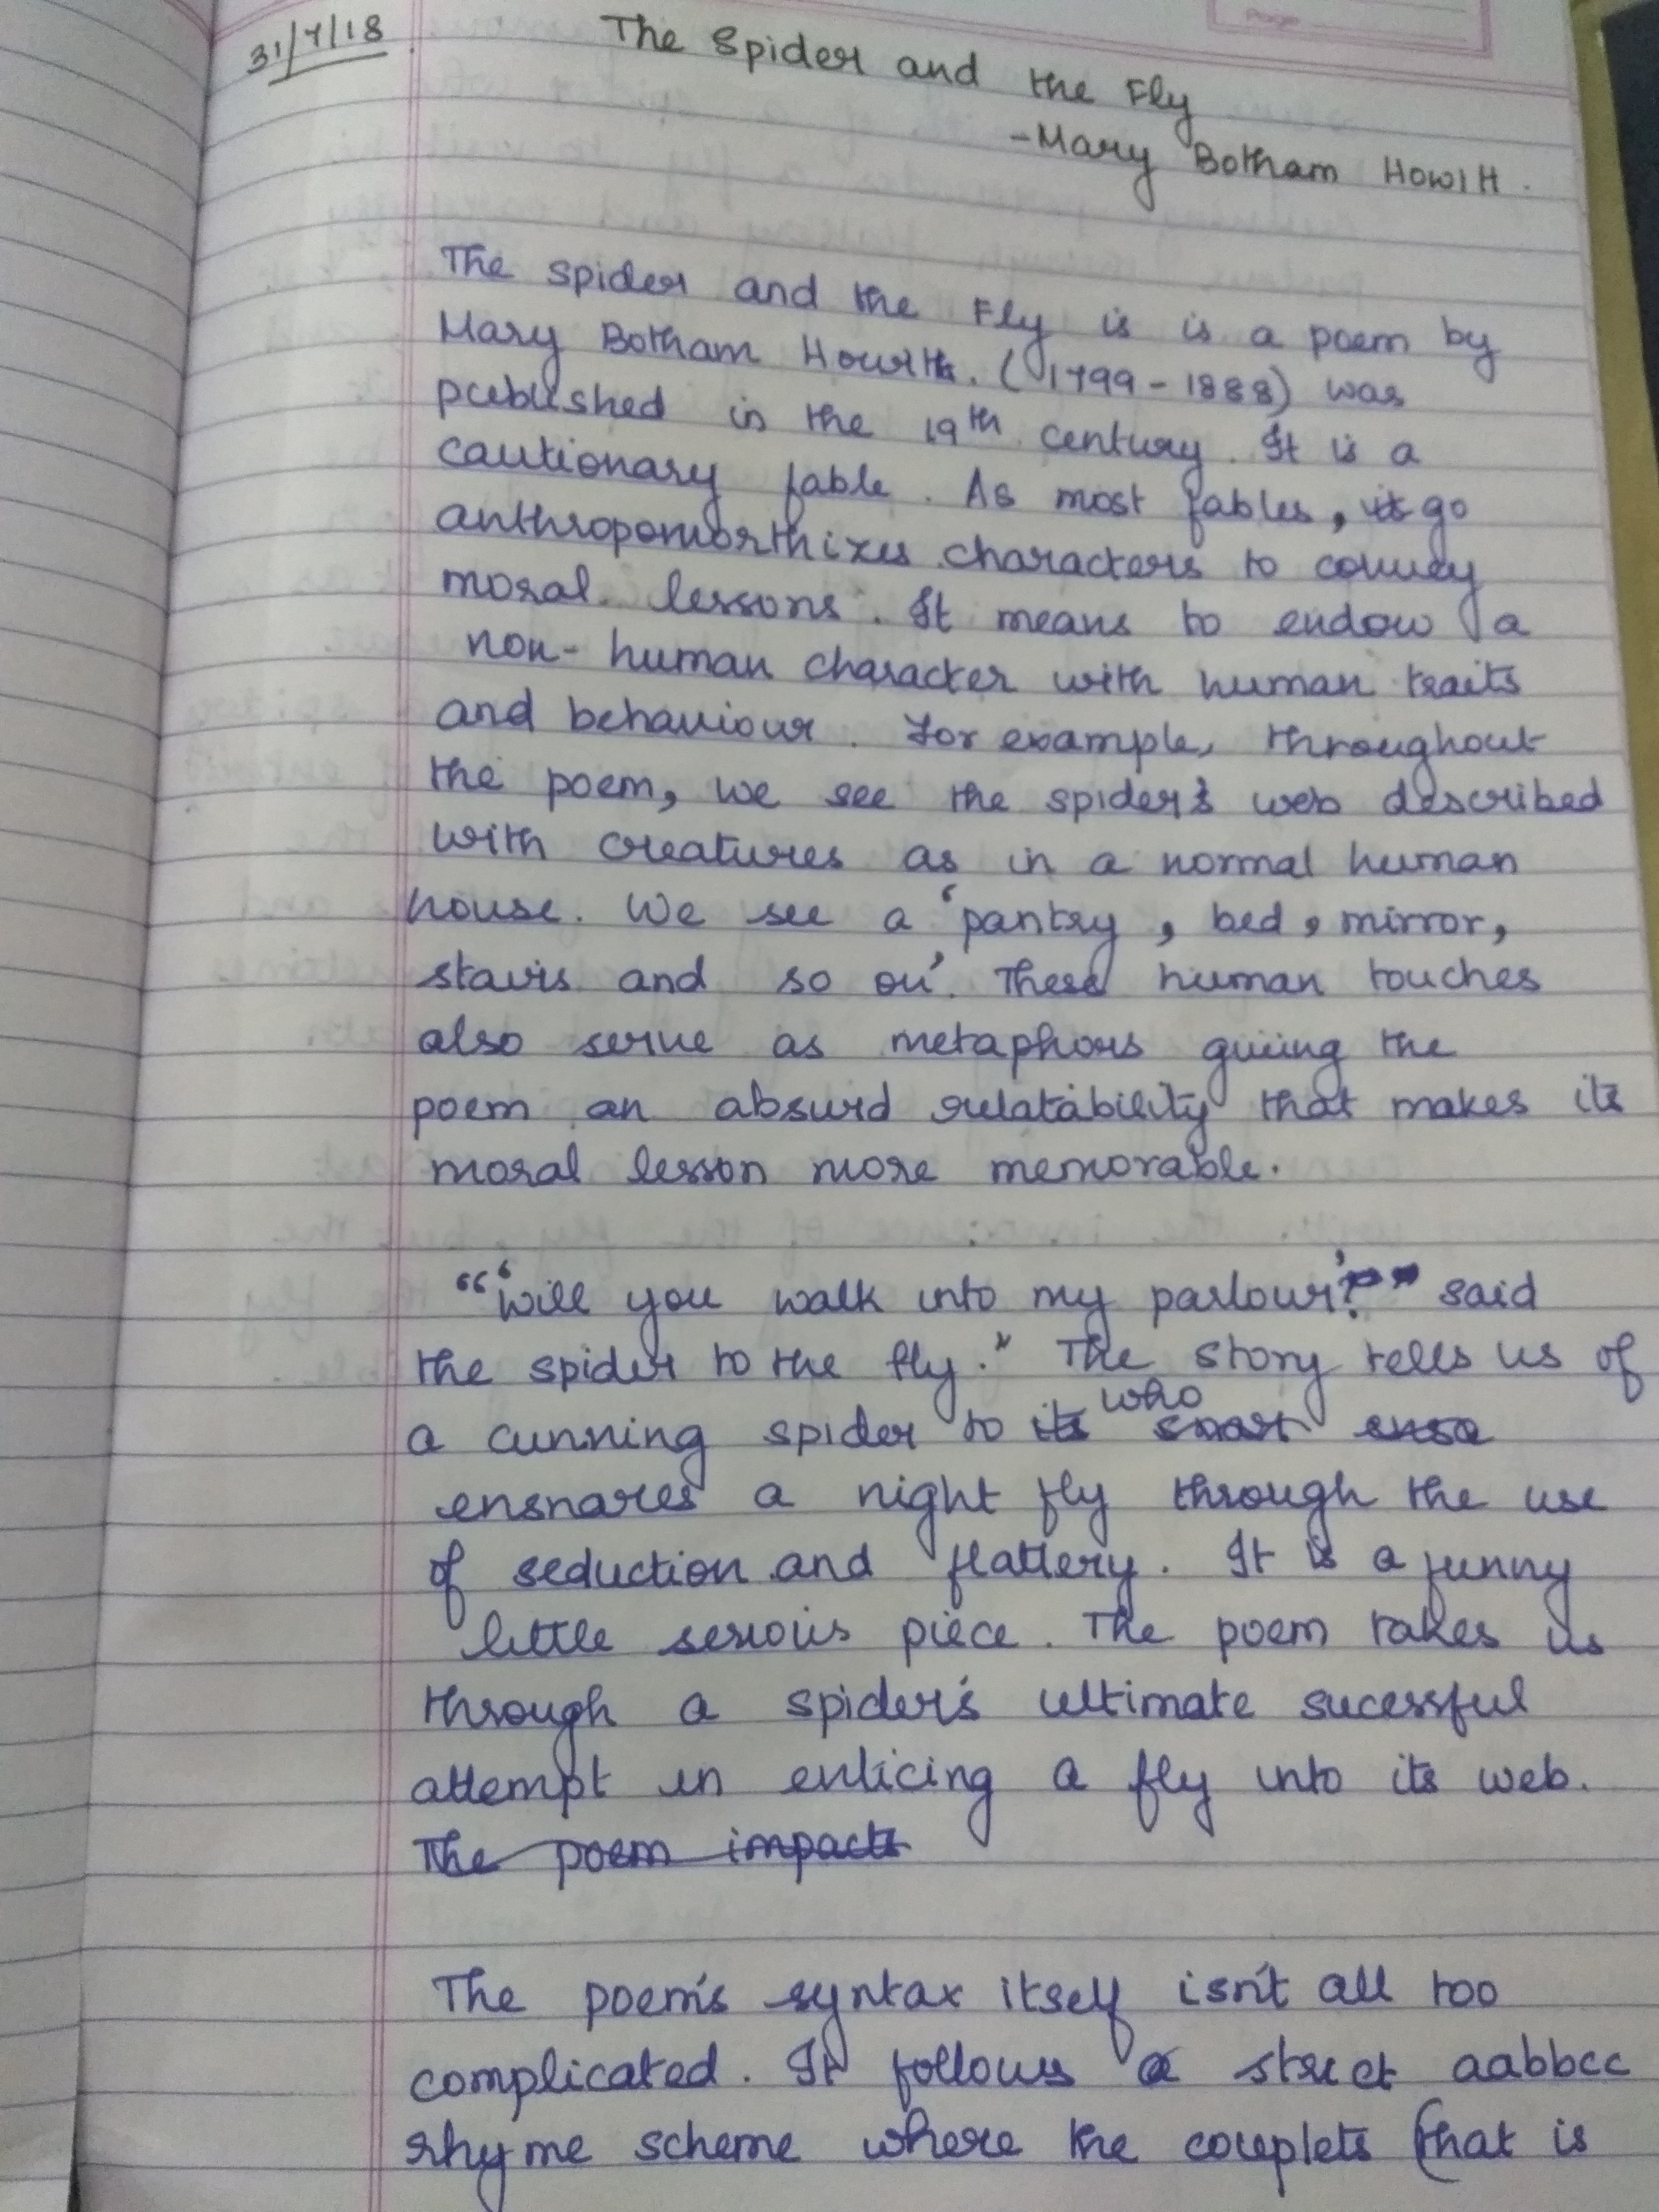 Page
31/7/18
The Spider and the Fly
-Mary Botham Howitt.
The spider and the Fly is is a poem by
Mary Botham Howith. (1799-1888) was
published in the 19th century. It is a
cautionary fable. As most fables, it go
anthropomorthizes characters to convey
moral lessons. It means to endow a
non-human character with human traits
and behaviour. For example, throughout
the poem, we see the spider's web described
with creatures as in a normal human
house. We see a 'pantry, bed, mirror,
stairs and so on'. These human touches
also serve as metaphors giving the
poem an absurd relatability that makes its
moral lesson more memorable.
"'Will you walk into my parlour'?" said
the spider to the fly." The story tells us of
a cunning spider to its who
ensnares a night fly through the use
of seduction and flattery. It is a funny
little serious piece. The poem takes us
through a spider's ultimate sucessful
attempt in enticing a fly into its web.
The poem impacts
The poem's syntax itself isn't all too
complicated. It follows a strict aabbcc
rhyme scheme where the couplets (that is